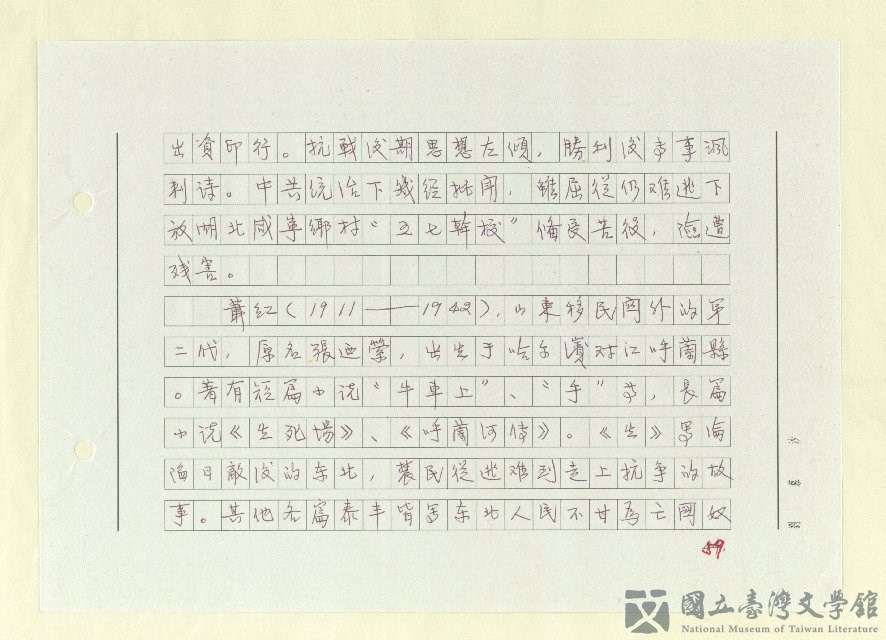 出資印行。抗戰後期思想左傾，勝利後專事諷
刺詩。中共统治下幾经批鬥，雖屈從仍难逃下
放湖北咸寧鄉村“五七幹校”備受苦役，險遭
残害。
蕭红(1911——1942)，山東移民關外的第
二代，原名張迺瑩，出生于哈尔濱对江呼蘭縣
。著有短篇小说“牛車上”、“手”等，長篇
小说《生死場》、《呼蘭河传》。《生》写淪
陷日敵後的东北，農民從逃难到走上抗争的故
事。其他各篇泰半皆写东北人民不甘為亡國奴
59.
國立臺灣文學館
National Museum of Taiwan Literature